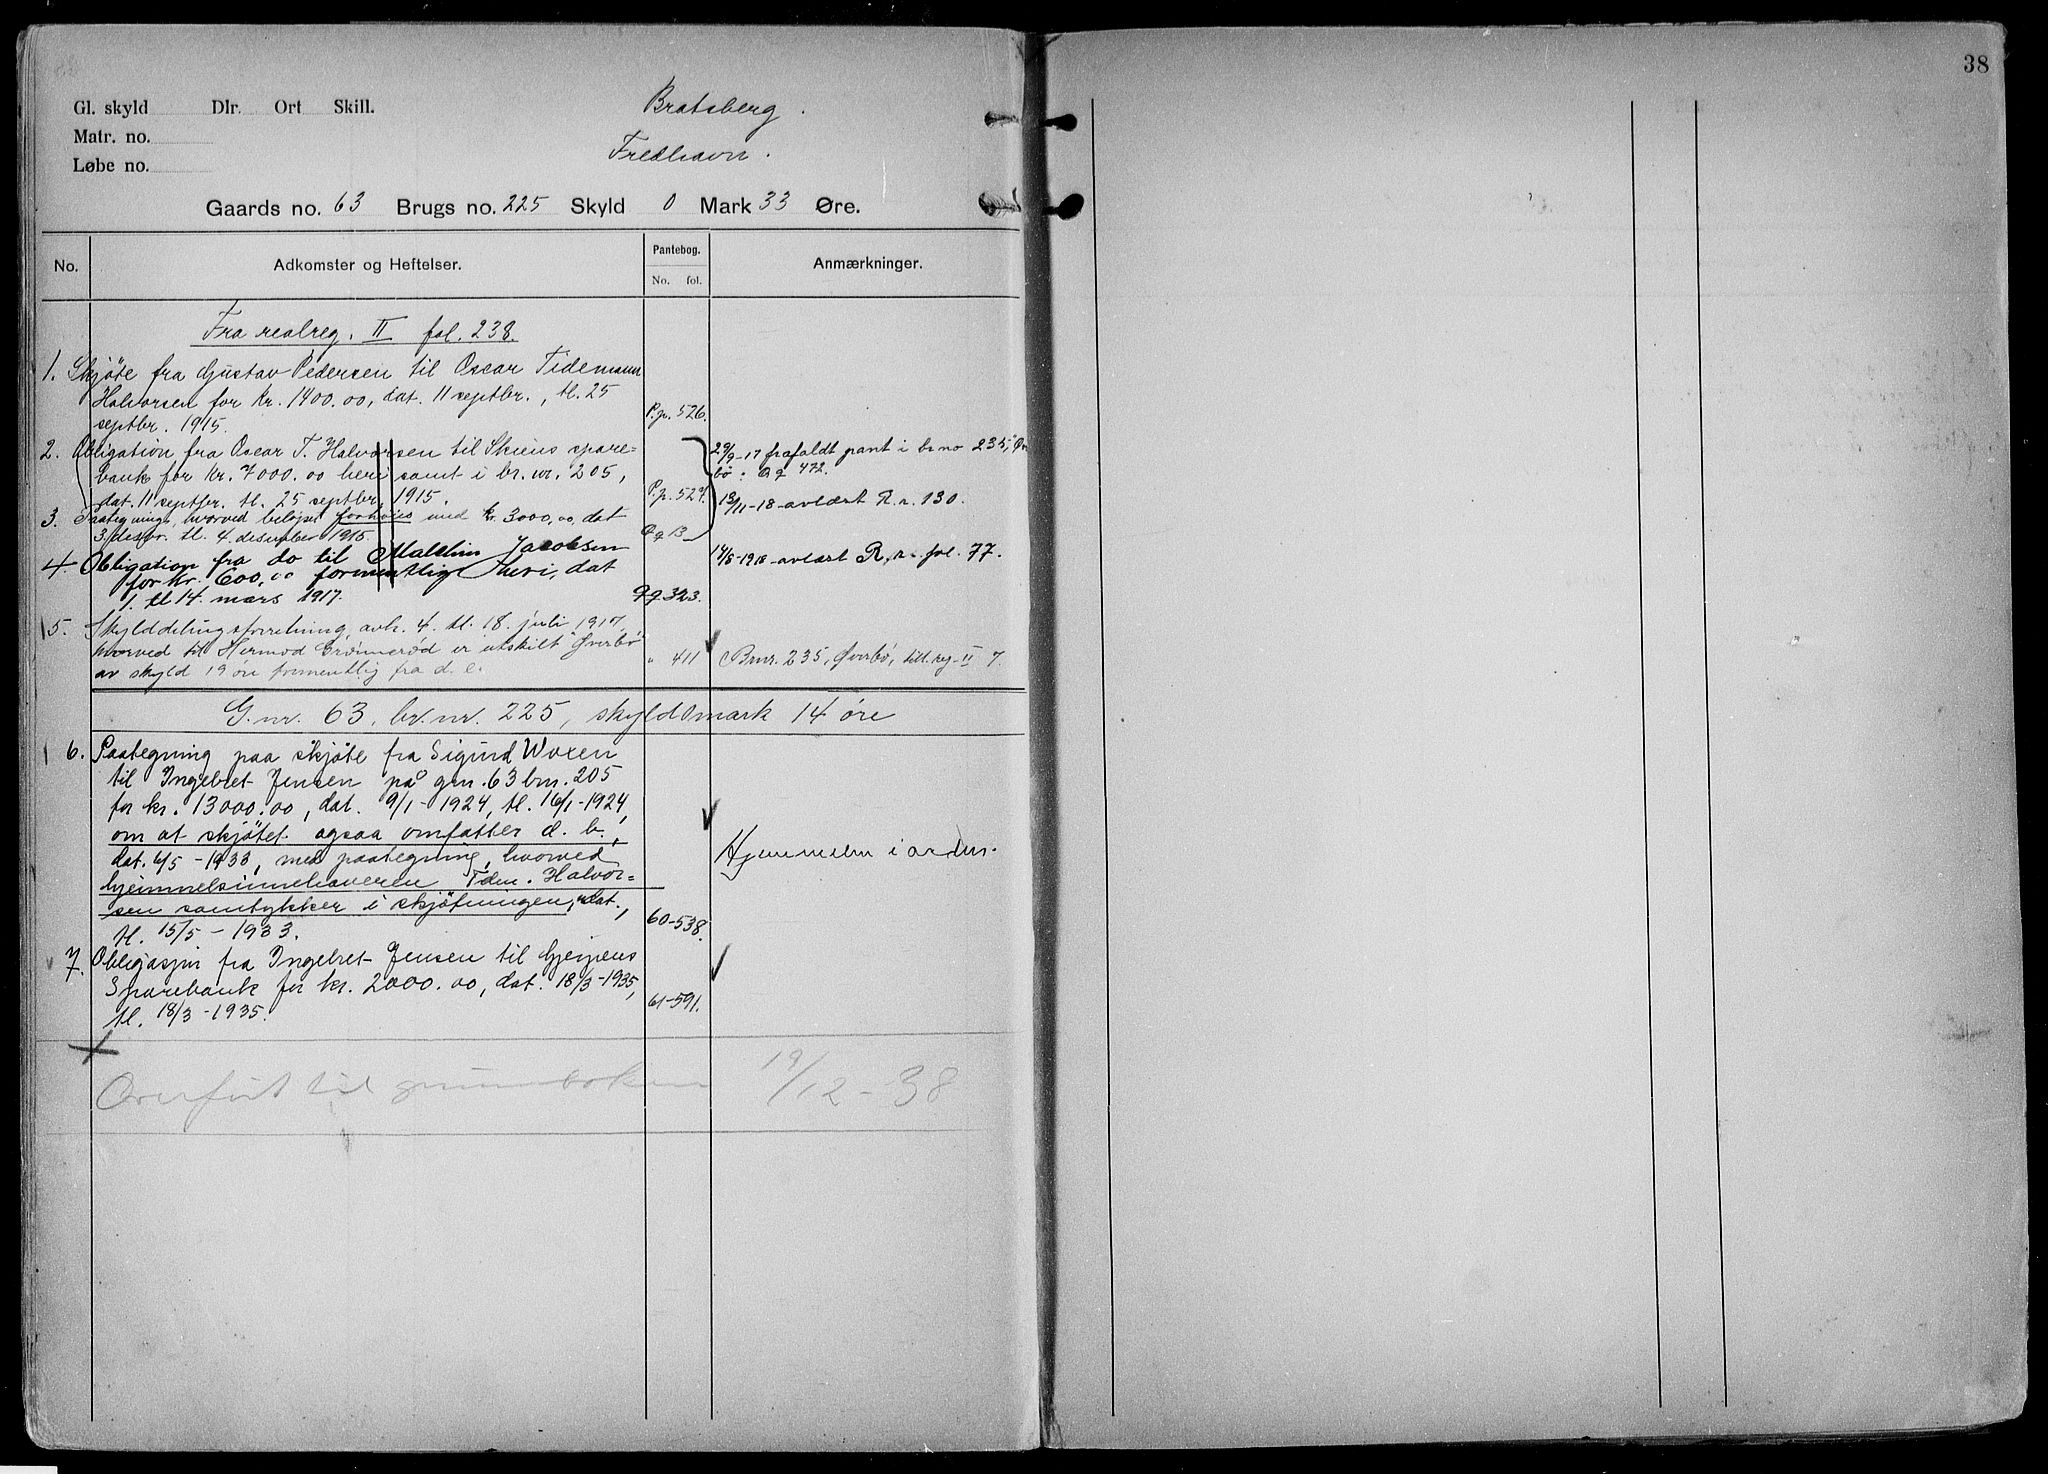 38
Gl. skyld Dlr. Ort Skill.
Matr. no.
Løbe no.
Bratsberg.
Fredhavn.
Gaards no. 63 Brugs no. 225 Skyld 0 Mark 33 Øre.
No. Adkomster og Heftelser. Pantebog. No. fol. Anmærkninger.
Fra realreg. II fol. 238.
1. Skjöte fra Gustav Pedersen til Oscar Tidemann
Halvorsen for kr. 1400.00, dat. 11 septbr., tl. 25
septbr. 1915. P.p. 526.
2. Obligation fra Oscar T. Halvorsen til Skiens spare-
bank for kr. 7000.00 heri samt i br. nr. 205,
dat. 11 septbr. tl. 25 septbr. 1915. P.p. 527.
29/9-17 frafaldt pant i brno 235, Øver
bø: Qq 472.
13/11-18 avlæst R.r. 130.
3. Paategning, hvorved beløpet forhöies med kr. 3000,00, dat
3 desbr. tl. 4 desember 1915. Qq 13
4. Obligation fra do til Jacobsen
for kr. 600,00 formentlig heri, dat
1. tl 14. mars 1917. Qq 323.
14/6-1918 avlæst R.r. fol. 77.
5. Skylddelingsforretning, avh. 4. tl. 18. juli 1917,
hvorved til Hermod Grönneröd er utskilt "Øverbö"
av skyld 19 öre formentlig fra d. e. " 411 Brnr. 235, Øverbö, till. reg. II 7.
G.nr. 63, br.nr. 225, skyldmark 14 øre
6. Paategning paa skjöte fra Sigurd Woxen
til Ingebret Jensen på gnr. 63 bnr. 205
for kr. 13000.00, dat. 9/1-1924, tl. 16/1-1924,
om at skjötet ogsaa omfatter d. b.,
dat. 6/5-1933, med paategning, hvorved
hjemmelsinnehaveren Tidem. Halvor-
sen samtykker i skjötningen, dat.,
tl. 15/5-1933. 60-538.
Hjemmelen i orden.
7. Obligasjon fra Ingebret Jensen til Gjerpens
Sparebank for kr. 2000.00, dat. 18/3-1935,
tl. 18/3-1935. 61-591.
Overført til grunnboken 19/12-38